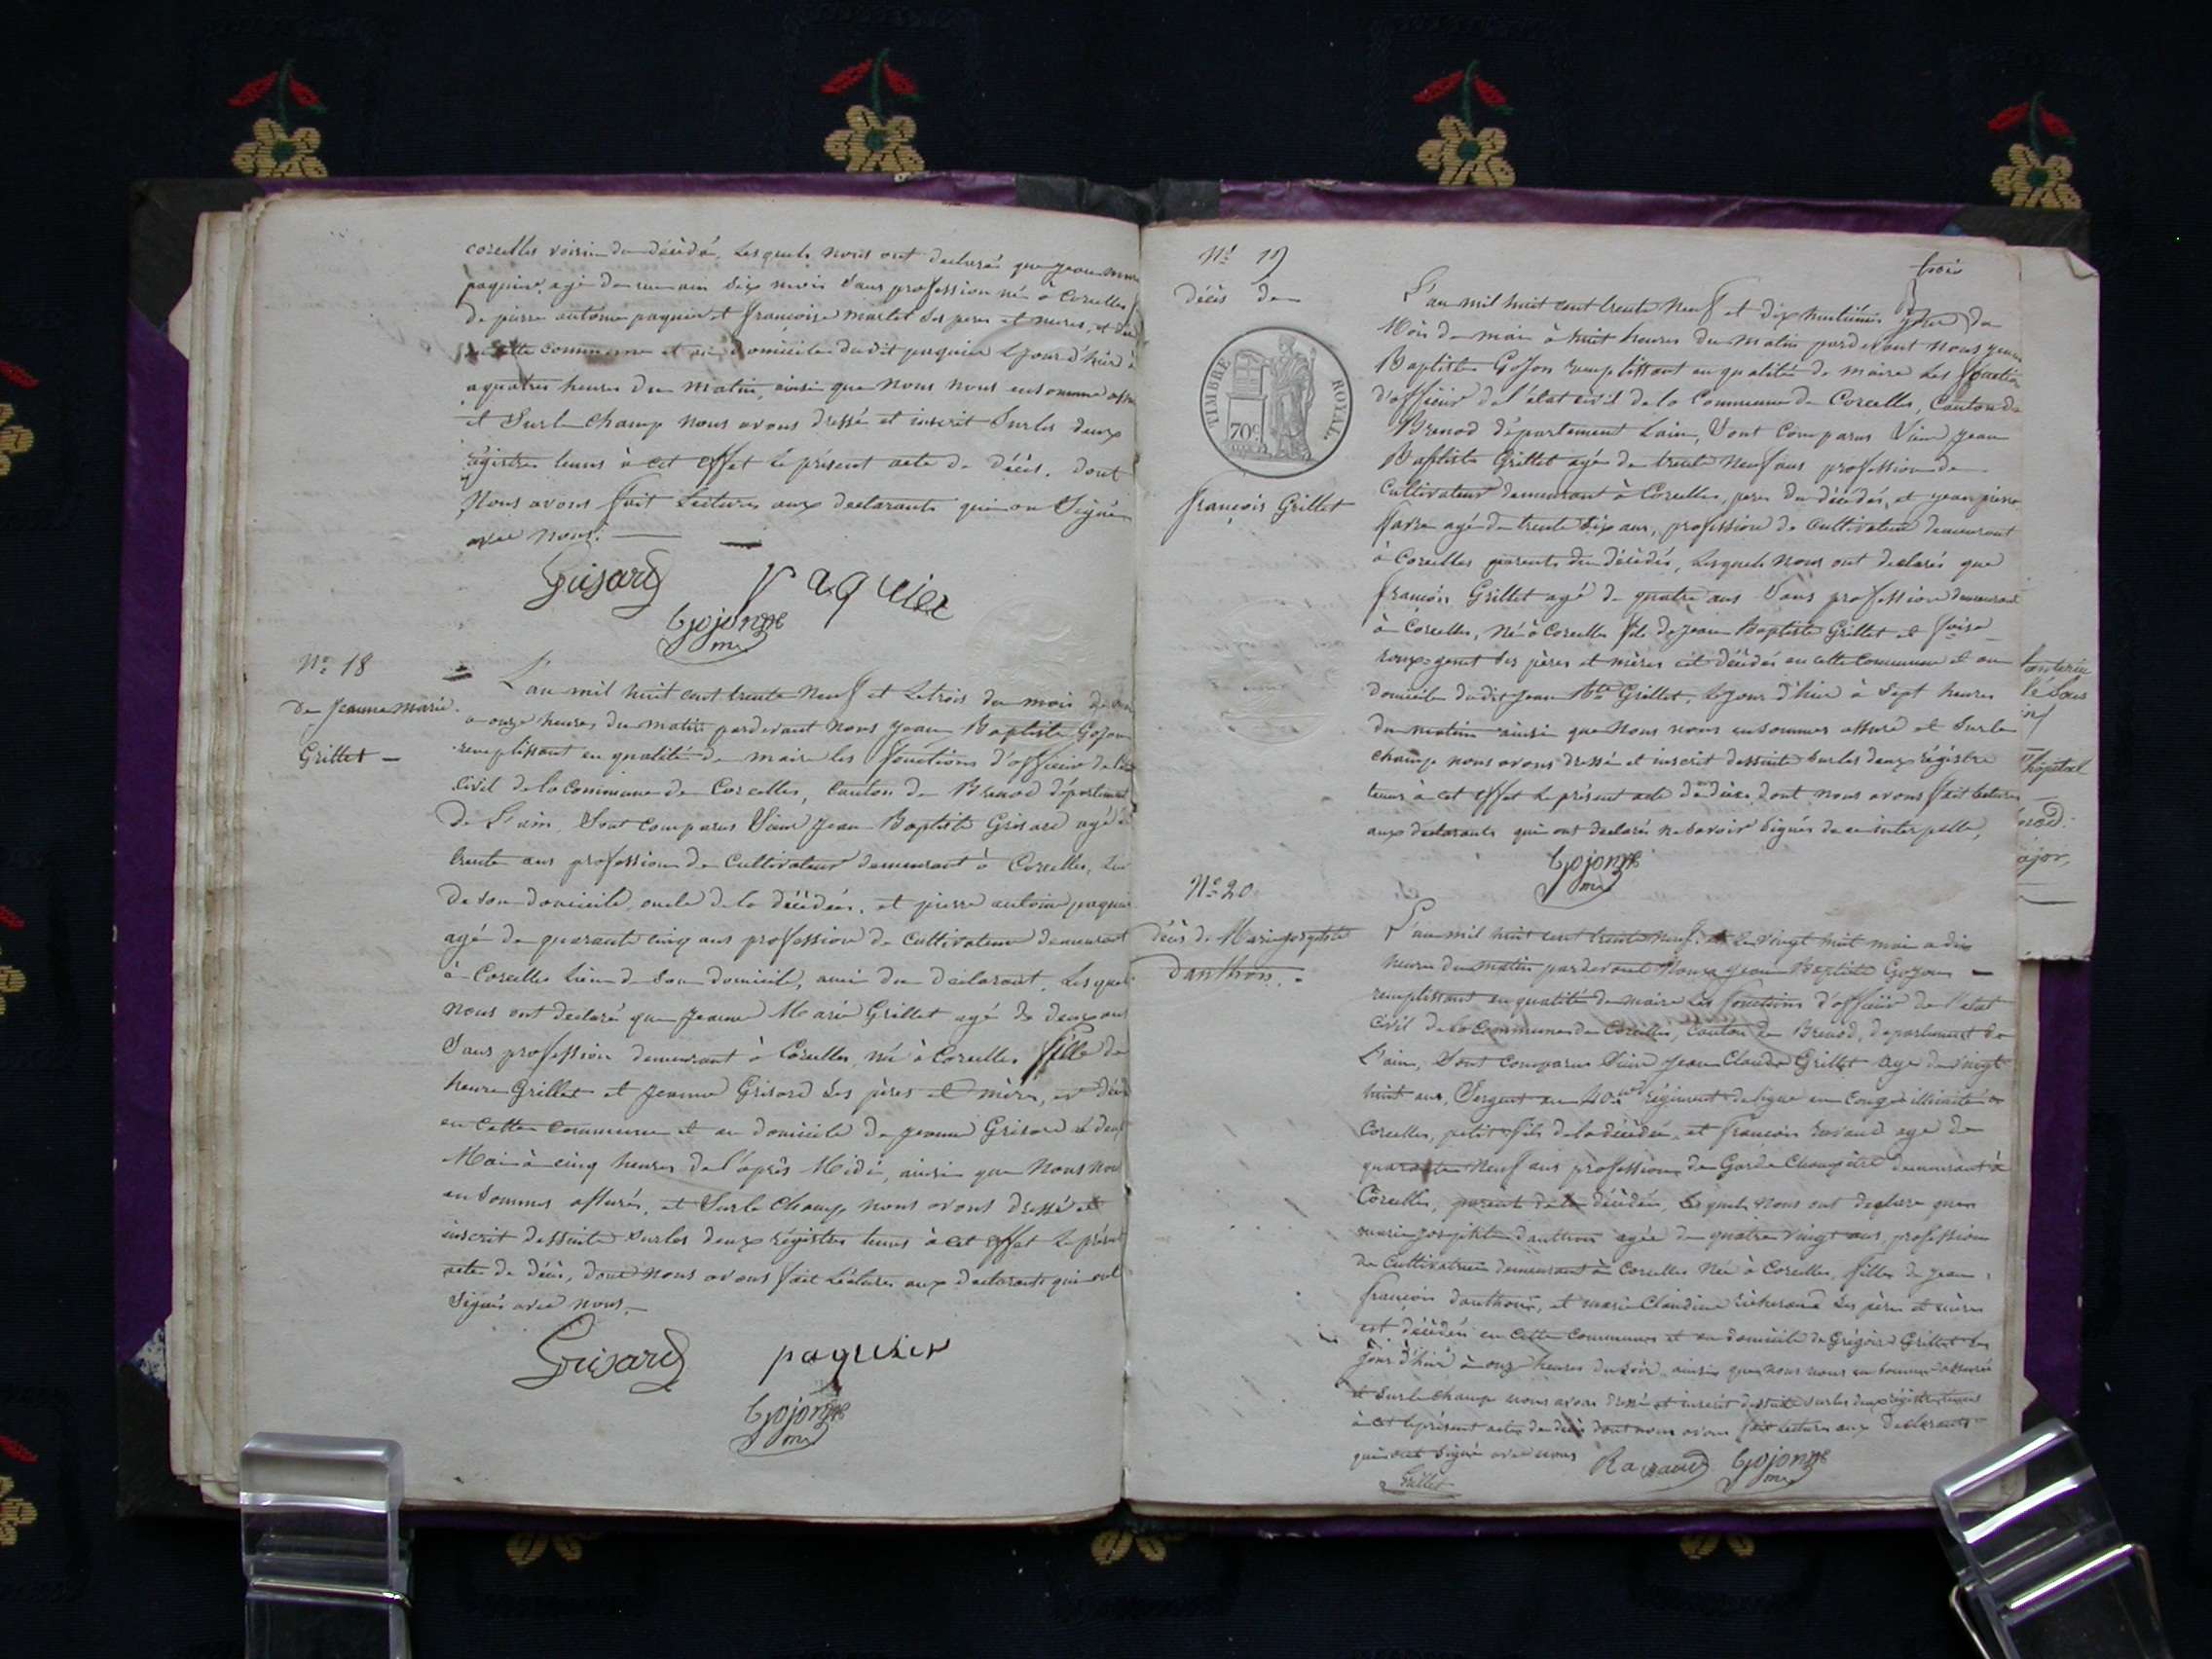 corcelles voisin du décédé, Lesquels nous ont declaré que jean
paquier, agé de un an six mois Sans profession né à Corcelles
De pierre antoine paquier et françoise martet Ses peres et meres, est
cette commune et au domicile dudit paquier le jour d'hier à
a quatres heures du matin, ainsi que nous nous en sommes
et Sur le champ nous avons dressé et inscrit Sur les deux
régistres tenus à cet effet le présent acte de décès. dont
Nous avons fait Lectures aux declarants qui on Signé
avec nous.
Grisard paquier
Gojon
me
N° 18
De Jeanne marie
Grillet
L'an mil huit cent trente Neuf et Le trois du mois de
a onze heures du matin pardevant Nous Jean Baptiste Gojon
remplissant en qualité de maire les fonctions d'officier de
Civil de la Commune de Corcelles, Canton de Brenod département
De L'ain, Sont comparus Sieur Jean Baptiste Grisard agé de
trente ans profession de Cultivateur demeurant à Corcelles, Lieu
De Son domicile, oncle de la décédée, et pierre antoine paquier
agé de quarante cinq ans profession de Cultivateur demeurant
à Corcelles Lieu de Son domicile, ami du declarant, Lesquels
Nous ont declaré que Jeanne Marie Grillet agé de deux ans
Sans profession demeurant à Corcelles, né à Corcelles fille de
Grillet et Jeanne Grisard Ses pères et mères, est
en Cette Commune et au domicile de Jeanne Grisard le deux
Mai à cinq heures de l'après Midi, ainsi que Nous Nous
en Sommes assurés, et Sur le Champ nous avons dressé et
inscrit dessuite Sur les deux régistres tenus à cet effet le présent
acte de décès, dont nous avons fait Lectures aux declarants qui ont
Signés avec nous.
Grisard paquier
Gojon
me
N° 19
Décès de
TIMBRE ROYAL
70c
françois Grillet
trois
L'an mil huit cent trente Neuf et dix huitième jour du
Mois de mai à huit heures du matin pardevant nous jean
Baptiste Gojon remplissant en qualité de maire Les fonction
d'officier de l'état civil de la Commune de Corcelles, Canton de
Brenod département Lain, Sont Comparus Sieur Jean
Baptiste Grillet agé de trente Neuf ans profession de
Cultivateur demeurant à Corcelles, pere du décédés, et jean pierre
favre agé de trente Six ans, profession de Cultivateur demeurant
à Corcelles parents du décédés, Lesquels Nous ont declarés que
françois Grillet agé de quatre ans Sans profession demeurant
à Corcelles, né à Corcelles fils de Jean Baptiste Grillet et
Ses pères et mères est décédés en cette Commune et au
domicile dudit Jean Bte Grillet, Le jour d'hier à Sept heures
du matin ainsi que Nous nous en sommes assuré et Sur le
champ nous avons dressé et inscrit dessuite Sur les deux régistre
tenus à cet effet le présent acte de décès dont nous avons fait Lecture
aux declarants qui ont declarés ne Savoir Signés de ce interpellé,
Gojon
me
N° 20
décès de Marie josephte
Danthon.
L'an mil huit cent trente neuf, et Le Vingt huit mai a dix
heures du matin pardevant Nous Jean Baptiste Gojon
remplissant en qualité de maire Les fonctions d'officier de l'etat
Civil de la Commune de Corcelles, Canton de Brenod, departement de
L'ain, Sont Comparus Sieur Jean Claude Grillet age de Vingt
huit ans, Sergent au 40me régiment de ligne en Congé illimité à
Corcelles, petit fils de la décédée, et françois Ravaud age de
quarante Neuf ans profession de Garde Champêtre demeurant à
Corcelles, parent de la décédée, Lesquels Nous ont declare que
marie josephte danthon agée de quatre Vingt ans, profession
de Cultivatrice demeurant à Corcelles Née à Corcelles, filles de Jean
françois danthon, et marie Claudine Ses pères et mères
est décédée en Cette Communes et au domicile de Grégoire Grillet Le
Jour d'hier à onze heures du Soir, ainsi que nous nous en Sommes assurés
et Sur le champ nous avons dressé et inscrit dessuite Sur les deux régistres tenus
à cet le présent actes de décès dont nous avons fait Lectures aux Declarants
qui ont Signé avec nous
Ravaud Gojon
me
Grillet
hôpital